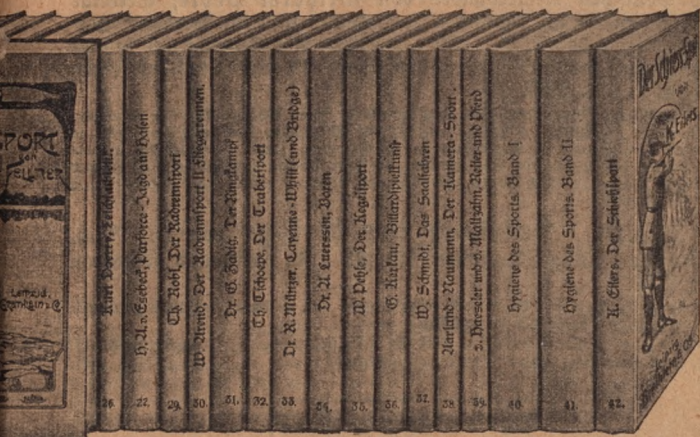 SPORT
von
Kurt Doerry, Leichtathletik.
26.
H. A. v. Esebeck, Parforce-Jagd auf Hasen
Th. Robl, Der Radrennsport
29.
W. Arend, Der Radrennsport II Fliegerrennen.
30.
Dr. G. Zadig, Der Ringkampf
31.
Th. Tschoepe, Der Trabersport
32.
Dr. R. Münzer, Cayenne-Whist (und Bridge)
33.
Dr. A. Luerssen, Boxen
34.
W. Pehle, Der Kegelsport
35.
G. Kerkau, Billardspielkunst
36.
W. Schmidt, Das Saalfahren
37.
Harland-Naumann, Der Kamera-Sport.
38
v. Haeseler und v. Maltzahn, Reiter und Pferd
39.
Hygiene des Sports. Band I
40.
Hygiene des Sports. Band II
41.
K. Eilers, Der Schießsport
42.
Der Schiesssport
von
K. Eilers